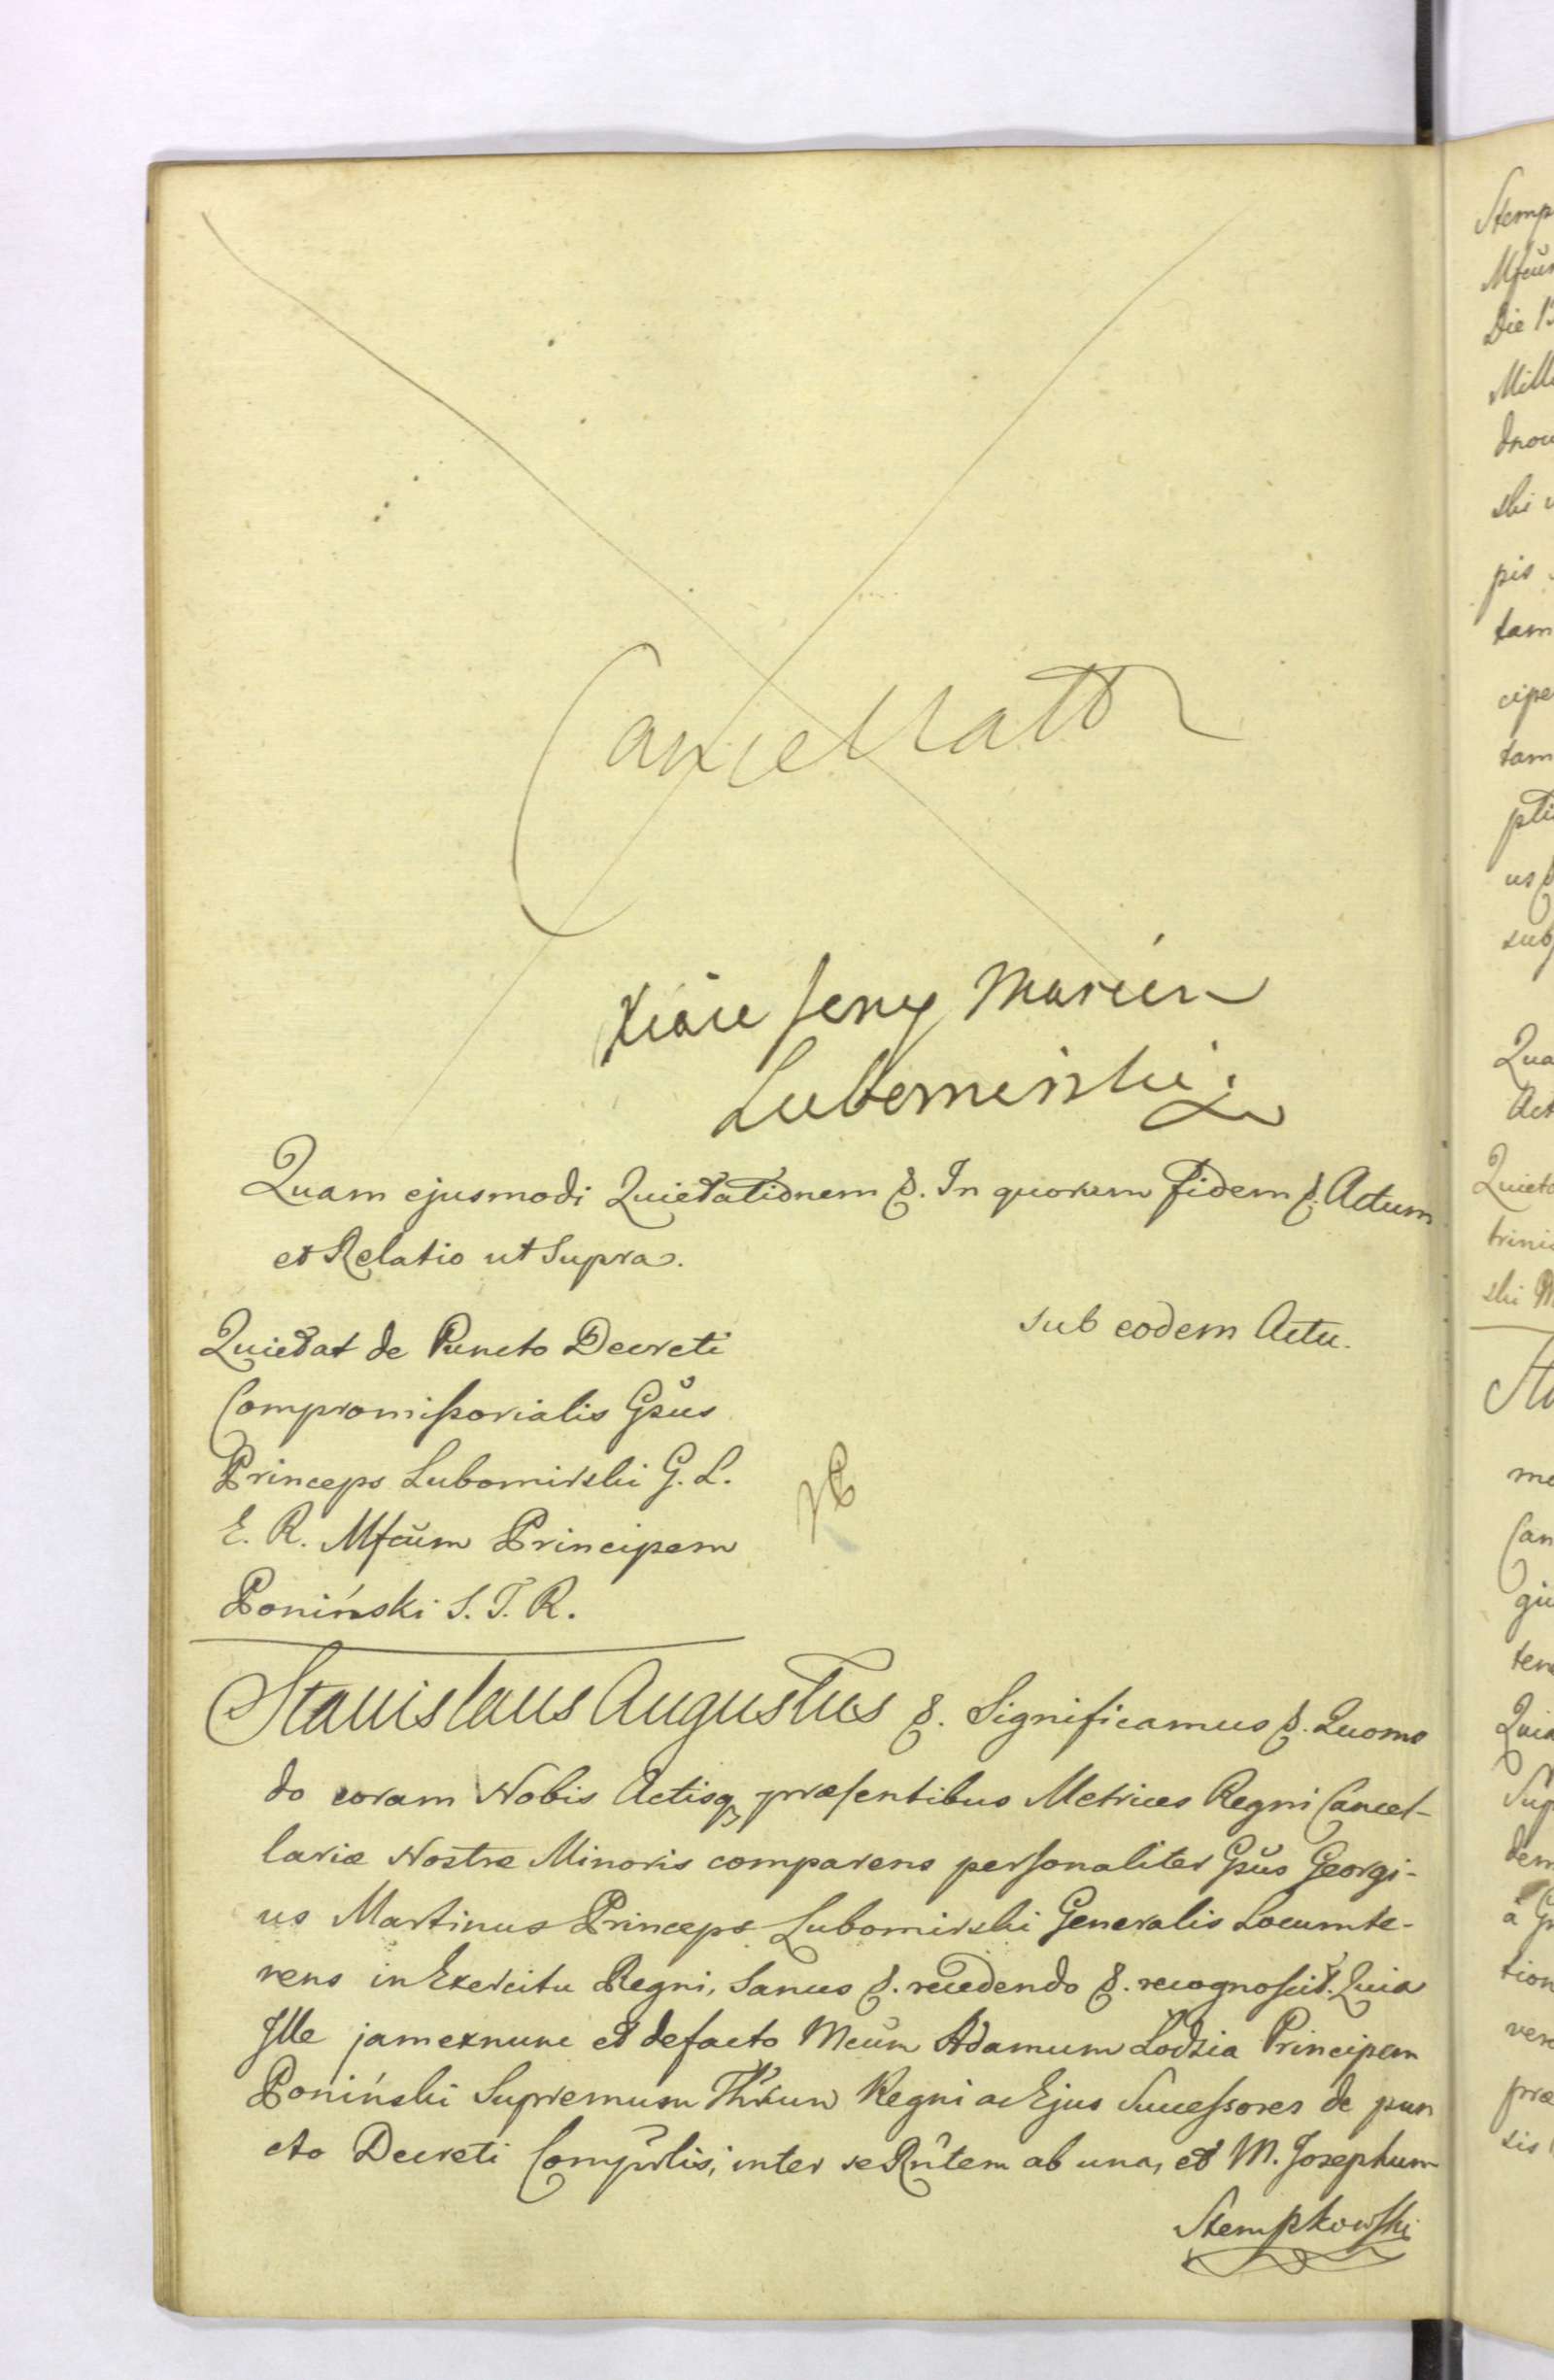 Cancellatt
Xiąze Jerzy Marcin
Lubomirski
Quam ejusmodi Quietationem &. In quorum fidem &. Actum
et Relatio ut Supra.
sub eodem Actu.
Quietat de Puncto Decreti
Compromissorialis Gsus
Princeps Lubomirski G. L.
E. R. Mfcum Principem
Poniński S. T. R.
Stanislaus Augustus &. Significamus &. Quomo
do coram Nobis Actisq præsentibus Metrices Regni Cancel-
lariæ Nostræ Minoris comparens personaliter Gsus Georgi-
us Martinus Princeps Lubomirski Generalis Locumte-
nens in Exercitu Regni, Sanus &. recedendo &. recognoscit. Quia
Ille jamexnunc et defacto Mcum Adamum Łodzia Principem
Poniński Supremum Thrium Regni ac Ejus Successores de pun
cto Decreti inter se ab una, et M. Josephum
Stempkowski
Stemp
Die 15
pis
tam
cipe
tam
us
sub
Qua
Act
Quieta
trini
ski
Can
ten
Quia
Sup
dem
tion
præ
sis